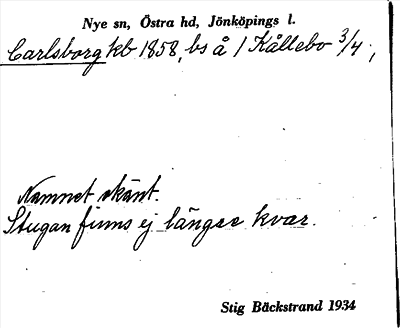 Nye sn, Östra hd, Jönköpings l.
Carlsborg kb 1858, bs å 1 Kållebo 3/4,
Namnet skänt.
Stugan finns ej längre kvar.
Stig Bäckstrand 1934